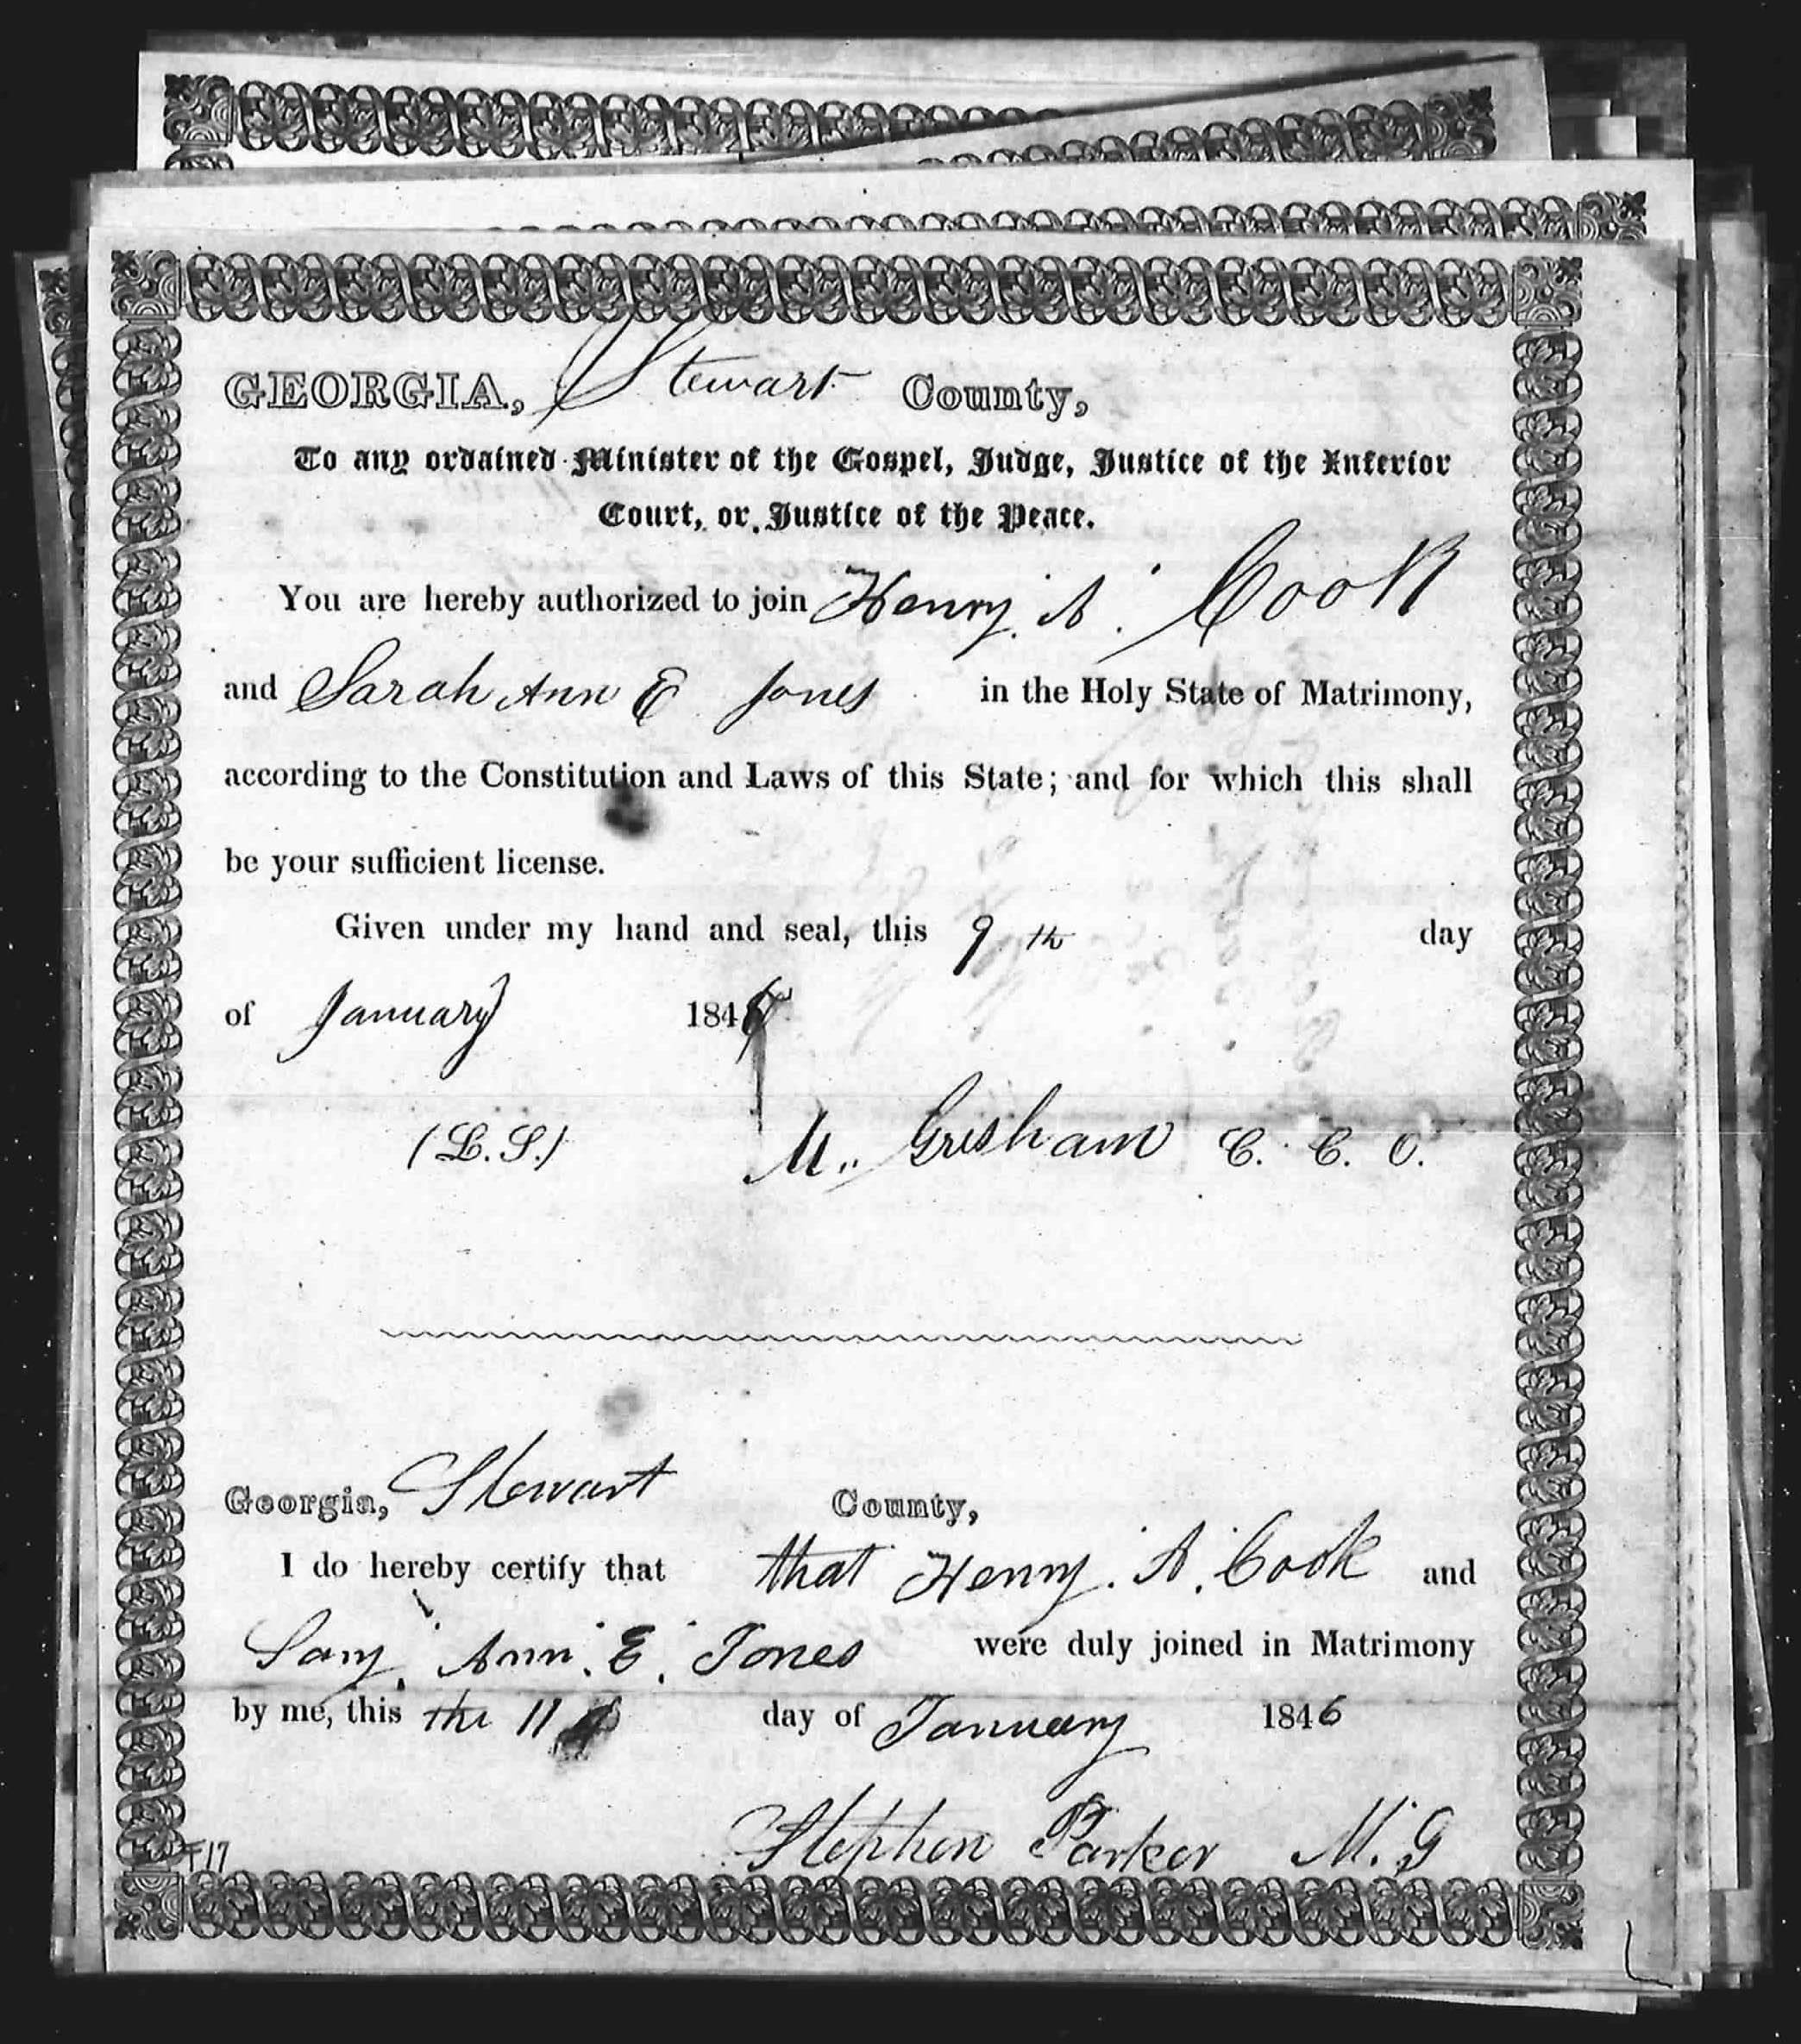 GEORGIA, Stewart County,
To any ordained Minister of the Gospel, Judge, Justice of the Inferior
Court, or Justice of the Peace.
You are hereby authorized to join Henry. A. Cook
and Sarah Ann E Jones in the Holy State of Matrimony,
according to the Constitution and Laws of this State; and for which this shall
be your sufficient license.
Given under my hand and seal, this 9th day
of January 184
(L.S.) M. Gresham C. C. O.
Georgia, Stewart County,
I do hereby certify that that Henry. A. Cook and
Sary. Ann. E. Jones were duly joined in Matrimony
by me, this the 11 day of January 1846
Stephen Parker M. G
F17